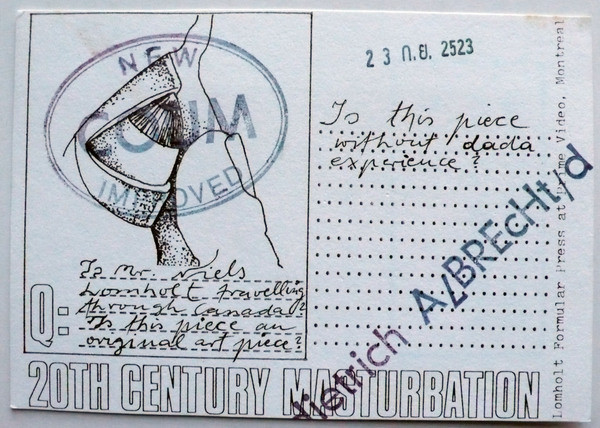 NEW
COUM
IMPROVED
23 ก.ย. 2523
Is this piece
without dada
experience?
Q:
To Mr. Niels
Lomholt travelling
through Canada?
Is this piece an
original art piece?
dietrich ALBREcHt/d
20TH CENTURY MASTURBATION
Lomholt Formular Press at Prime Video, Montreal